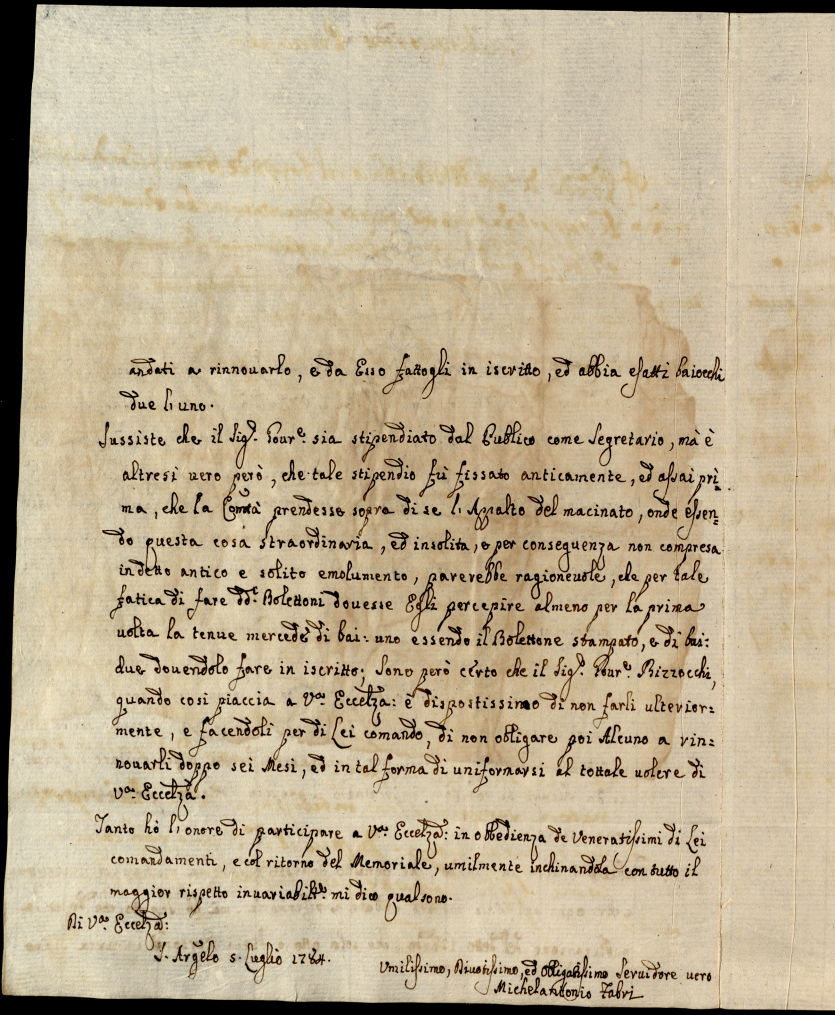 andati a rinnouarlo, e da Esso fattogli in iscritto, ed abbia esatti baiocchi
due l'uno.
Sussiste che il Sig.r Gour.e sia stipendiato dal Publico come Segretario, mà è
altresì uero però, che tale stipendio fù fissato anticamente, ed assai pri=
ma, che la Com̃tà prendesse sopra di se l'Appalto del macinato, onde essen=
do questa cosa straordinaria, ed insolita, e per conseguenza non compresa
in detto antico e solito emolumento, parerebbe ragioneuole, che per tale
fatica di fare dd.i Bolettoni douesse Egli percepire almeno per la prima
uolta la tenue mercede di bai: uno essendo il Bolettone stampato, e di bai:
due douendolo fare in iscritto; Sono però certo che il Sig.r Gour.e Bizzocchi,
quando così piaccia a V.ra Eccelza: è dispostissimo di non farli ulterior=
mente, e facendoli per di Lei comando, di non obligare poi Alcuno a rin=
nouarli doppo sei Mesi, ed in tal forma di uniformarsi al tottale uolere di
V.ra Eccelza.
Tanto hò l'onore di participare a V.ra Eccelza: in obbedienza de Veneratissimi di Lei
comandamenti, e col ritorno del Memoriale, umilmente inchinandola con tutto il
maggior rispetto inuariabilt.e mi dico qual sono.
Di V.ra Eccelza:
S. Argelo 5. Luglio 1784.
Umilissimo, Diuotissimo, ed Obligatissimo Seruidore uero
Michelantonio Fabri